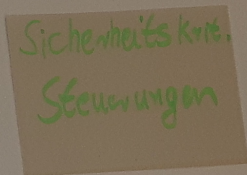 Sicherheitskrit.
Steuerungen